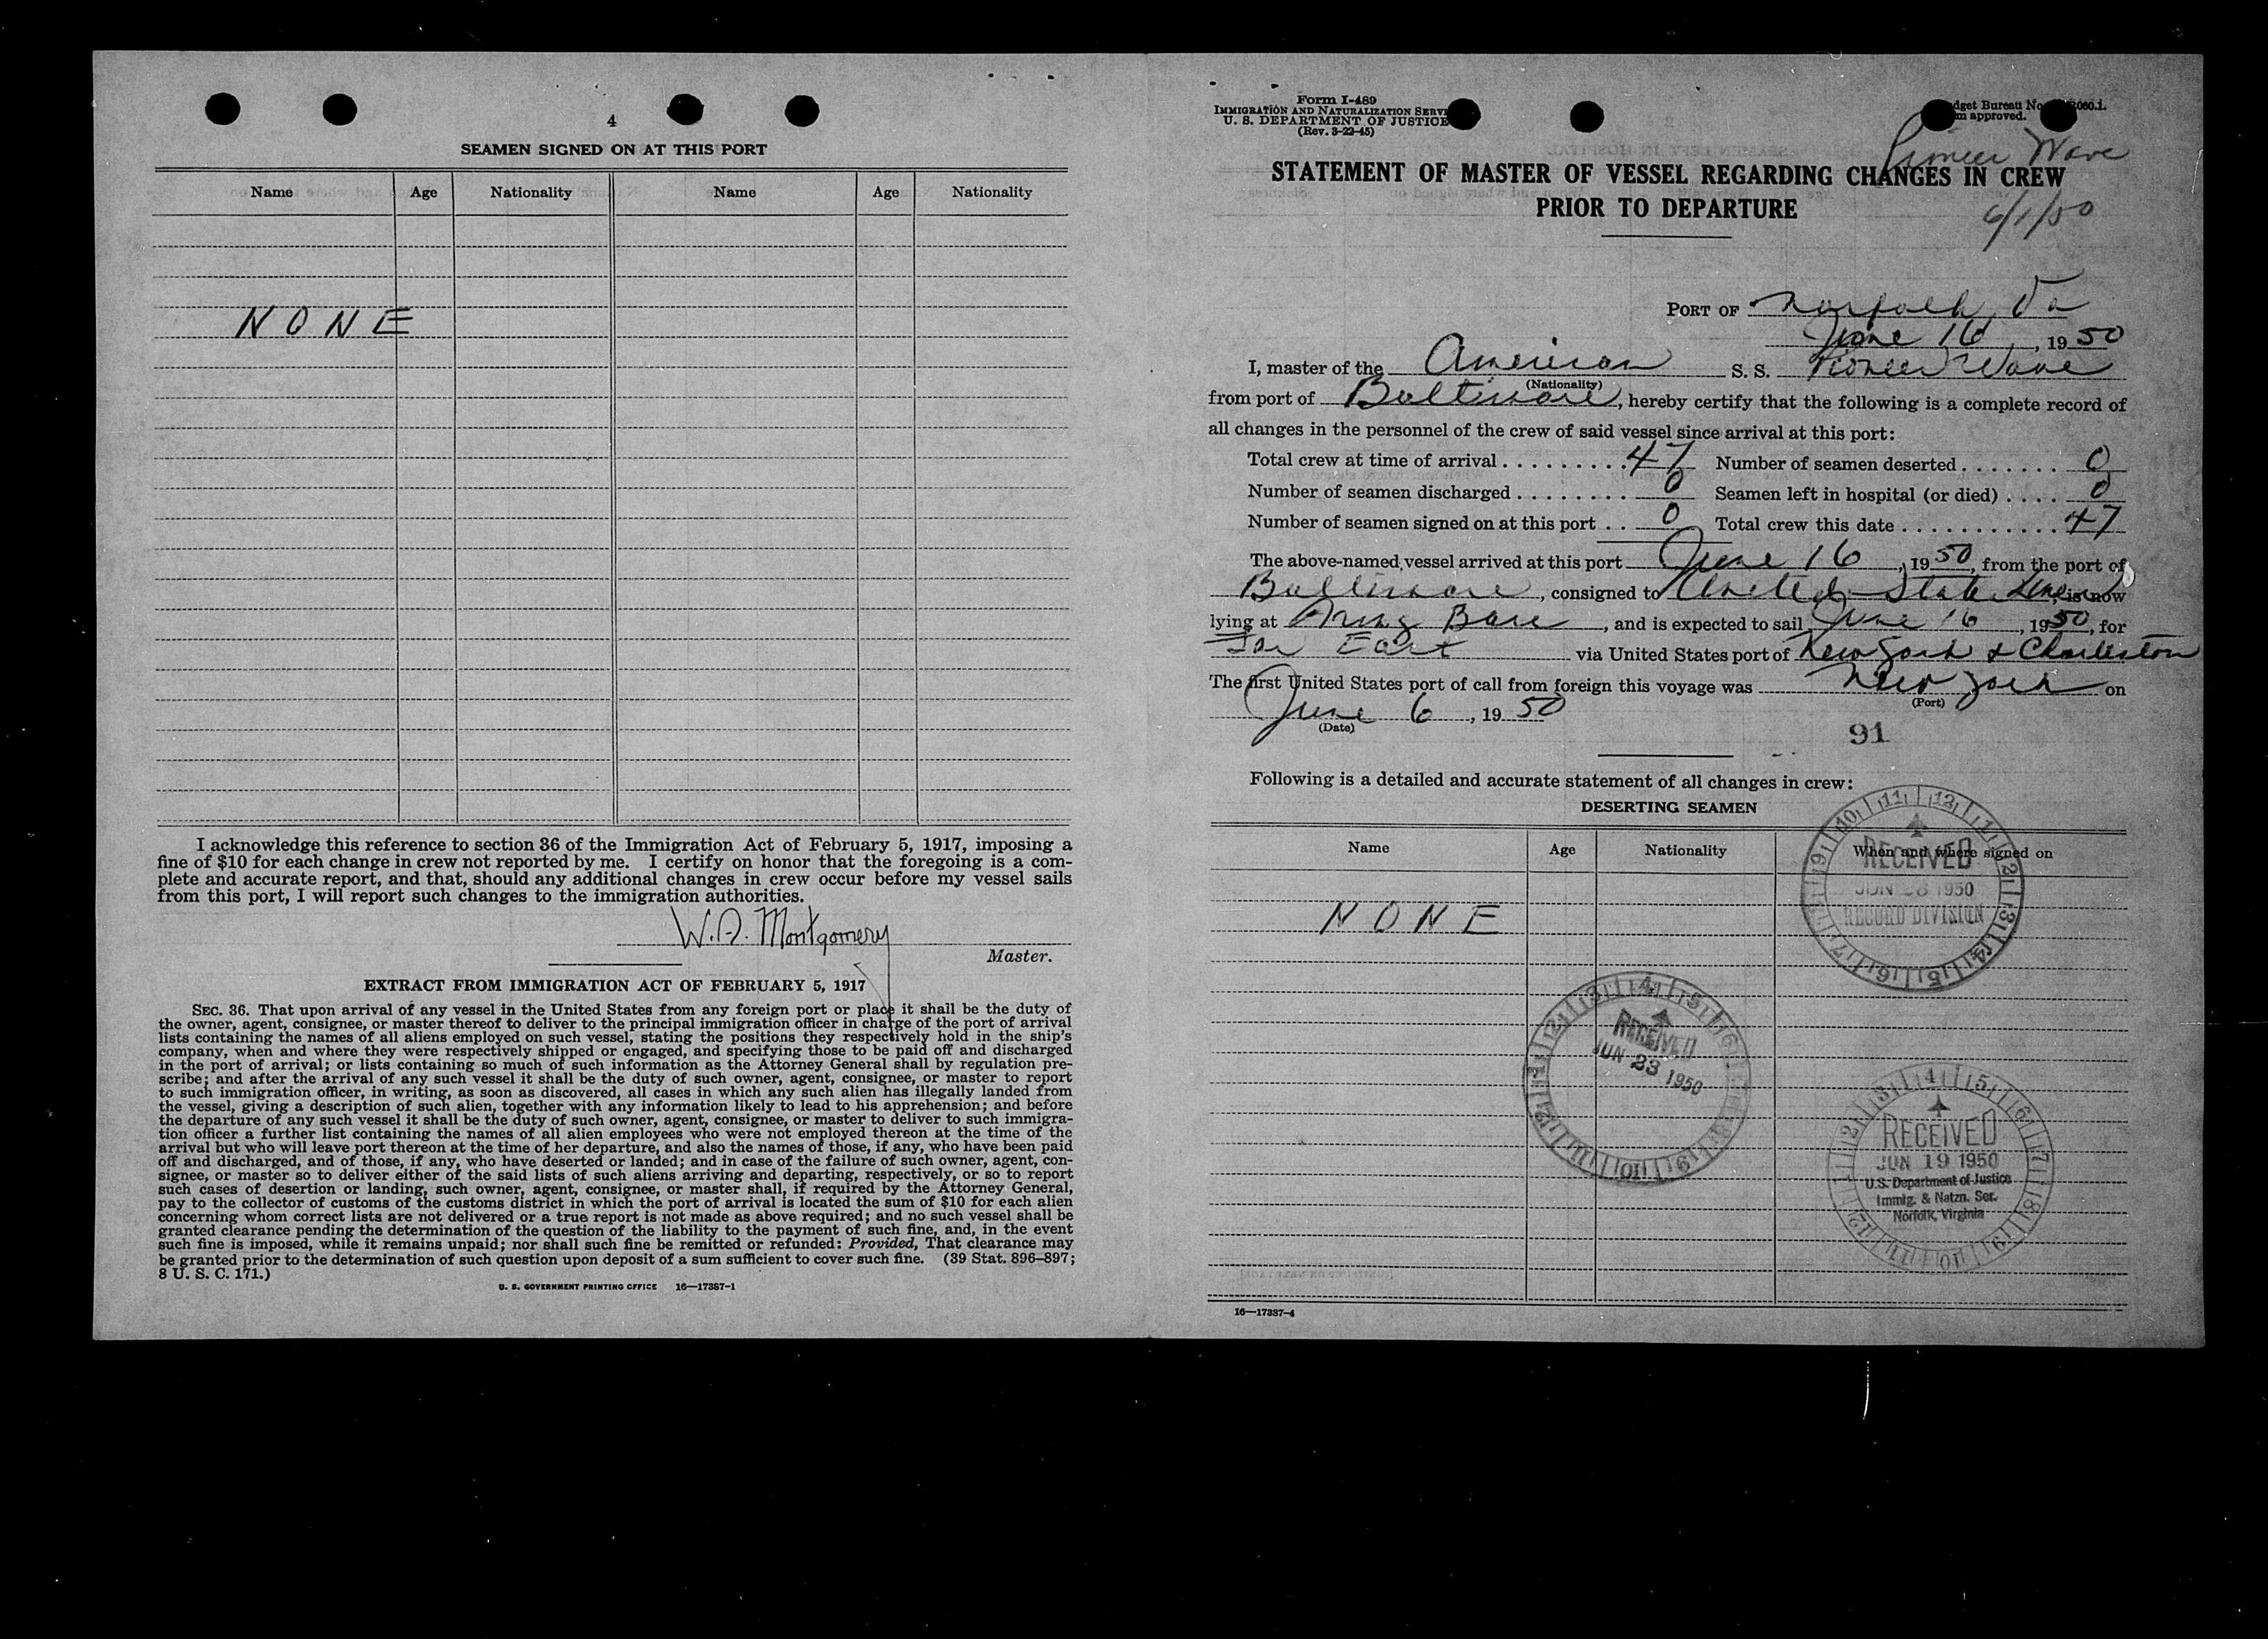 4
SEAMEN SIGNED ON AT THIS PORT
Name Age Nationality Name Age Nationality
NONE
I acknowledge this reference to section 36 of the Immigration Act of February 5, 1917, imposing a
fine of $10 for each change in crew not reported by me. I certify on honor that the foregoing is a com-
plete and accurate report, and that, should any additional changes in crew occur before my vessel sails
from this port, I will report such changes to the immigration authorities.
W.A. Montgomery
Master.
EXTRACT FROM IMMIGRATION ACT OF FEBRUARY 5, 1917
SEC. 36. That upon arrival of any vessel in the United States from any foreign port or place it shall be the duty of
the owner, agent, consignee, or master thereof to deliver to the principal immigration officer in charge of the port of arrival
lists containing the names of all aliens employed on such vessel, stating the positions they respectively hold in the ship's
company, when and where they were respectively shipped or engaged, and specifying those to be paid off and discharged
in the port of arrival; or lists containing so much of such information as the Attorney General shall by regulation pre-
scribe; and after the arrival of any such vessel it shall be the duty of such owner, agent, consignee, or master to report
to such immigration officer, in writing, as soon as discovered, all cases in which any such alien has illegally landed from
the vessel, giving a description of such alien, together with any information likely to lead to his apprehension; and before
the departure of any such vessel it shall be the duty of such owner, agent, consignee, or master to deliver to such immigra-
tion officer a further list containing the names of all alien employees who were not employed thereon at the time of the
arrival but who will leave port thereon at the time of her departure, and also the names of those, if any, who have been paid
off and discharged, and of those, if any, who have deserted or landed; and in case of the failure of such owner, agent, con-
signee, or master so to deliver either of the said lists of such aliens arriving and departing, respectively, or so to report
such cases of desertion or landing, such owner, agent, consignee, or master shall, if required by the Attorney General,
pay to the collector of customs of the customs district in which the port of arrival is located the sum of $10 for each alien
concerning whom correct lists are not delivered or a true report is not made as above required; and no such vessel shall be
granted clearance pending the determination of the question of the liability to the payment of such fine, and, in the event
such fine is imposed, while it remains unpaid; nor shall such fine be remitted or refunded: Provided, That clearance may
be granted prior to the determination of such question upon deposit of a sum sufficient to cover such fine. (39 Stat. 896-897;
8 U. S. C. 171.)
U. S. GOVERNMENT PRINTING OFFICE 16—17387-1
Form I-489
IMMIGRATION AND NATURALIZATION SERV
U. S. DEPARTMENT OF JUSTICE
(Rev. 3-22-45)
dget Bureau No. 060.1.
m approved.
Pioneer Wave
STATEMENT OF MASTER OF VESSEL REGARDING CHANGES IN CREW
PRIOR TO DEPARTURE
6/1/50
PORT OF Norfolk, Va
June 16, 1950
I, master of the American S. S. Pioneer Wave
(Nationality)
from port of Baltimore, hereby certify that the following is a complete record of
all changes in the personnel of the crew of said vessel since arrival at this port:
Total crew at time of arrival 47 Number of seamen deserted 0
Number of seamen discharged 0 Seamen left in hospital (or died) 0
Number of seamen signed on at this port 0 Total crew this date 47
The above-named vessel arrived at this port June 16, 1950, from the port of
Baltimore, consigned to United State Lines, is now
lying at Army Base, and is expected to sail June 16, 1950, for
Far East via United States port of New York & Charleston
The first United States port of call from foreign this voyage was New York on
(Port)
June 6, 1950
(Date)
91
Following is a detailed and accurate statement of all changes in crew:
DESERTING SEAMEN
Name Age Nationality When and where signed on
NONE
RECEIVED
JUN 1950
RECORD DIVISION
RECEIVED
JUN 23 1950
RECEIVED
JUN 19 1950
U.S. Department of Justice
Immig. & Natzn. Ser.
Norfolk, Virginia
16—17387-4